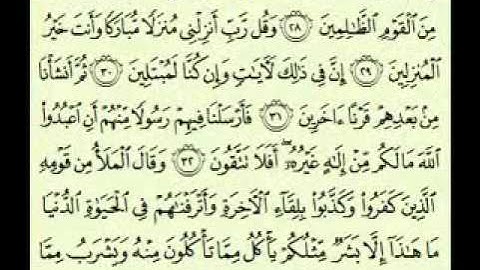 مِنَ ٱلۡقَوۡمِ ٱلظَّـٰلِمِينَ ٢٨ وَقُل رَّبِّ أَنزِلۡنِى مُنزَلًا مُّبَارَكًا وَأَنتَ خَيۡرُ
ٱلۡمُنزِلِينَ ٢٩ إِنَّ فِى ذَٰلِكَ لَأٓيَـٰتٍ وَإِن كُنَّا لَمُبۡتَلِينَ ٣٠ ثُمَّ أَنشَأۡنَا
مِنۢ بَعۡدِهِمۡ قَرۡنًا ءَاخَرِينَ ٣١ فَأَرۡسَلۡنَا فِيهِمۡ رَسُولًا مِّنۡهُمۡ أَنِ ٱعۡبُدُواْ
ٱللَّهَ مَا لَكُم مِّنۡ إِلَـٰهٍ غَيۡرُهُۥٓۖ أَفَلَا تَتَّقُونَ ٣٢ وَقَالَ ٱلۡمَلَأُ مِن قَوۡمِهِ
ٱلَّذِينَ كَفَرُواْ وَكَذَّبُواْ بِلِقَآءِ ٱلۡأٓخِرَةِ وَأَتۡرَفۡنَـٰهُمۡ فِى ٱلۡحَيَوٰةِ ٱلدُّنۡيَا
مَا هَـٰذَآ إِلَّا بَشَرٌ مِّثۡلُكُمۡ يَأۡكُلُ مِمَّا تَأۡكُلُونَ مِنۡهُ وَيَشۡرَبُ مِمَّا